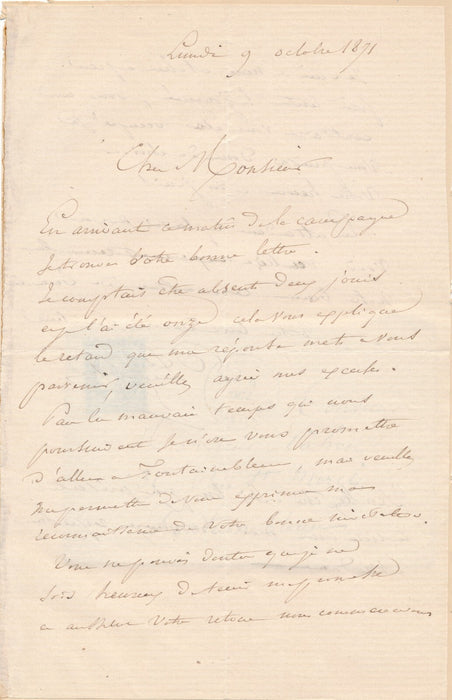 Lundi 9 octobre 1871
Cher Monsieur
En arrivant ce matin de la campagne
Je trouve votre bonne lettre.
Je comptais être absent deux jours
et je l'ai été onze cela vous explique
le retard que ma réponse mets a vous
parvenir, veuillez agréer mes excuses.
Par le mauvais temps qui nous
poursuivent Je n'ose vous promettre
d'aller a Fontainebleau, mais veuillez
me permettre de vous exprimer ma
reconnaissance de votre bonne invitation.
Vous ne pouvez douter que je ne
sois heureux de
a votre retour nous commencerons